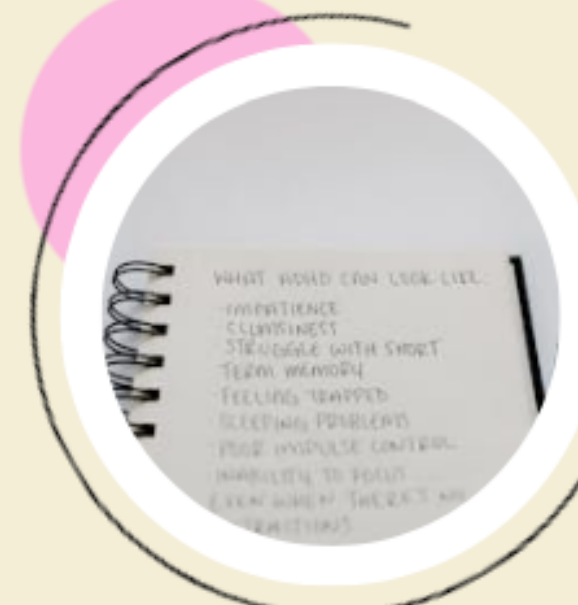 WHAT ADHD CAN LOOK LIKE:
-IMPATIENCE
-CLUMSINESS
-STRUGGLE WITH SHORT
TERM MEMORY
-FEELING TRAPPED
-SLEEPING PROBLEMS
-POOR IMPULSE CONTROL
-INABILITY TO FOCUS
EVEN WHEN THERE'S NO